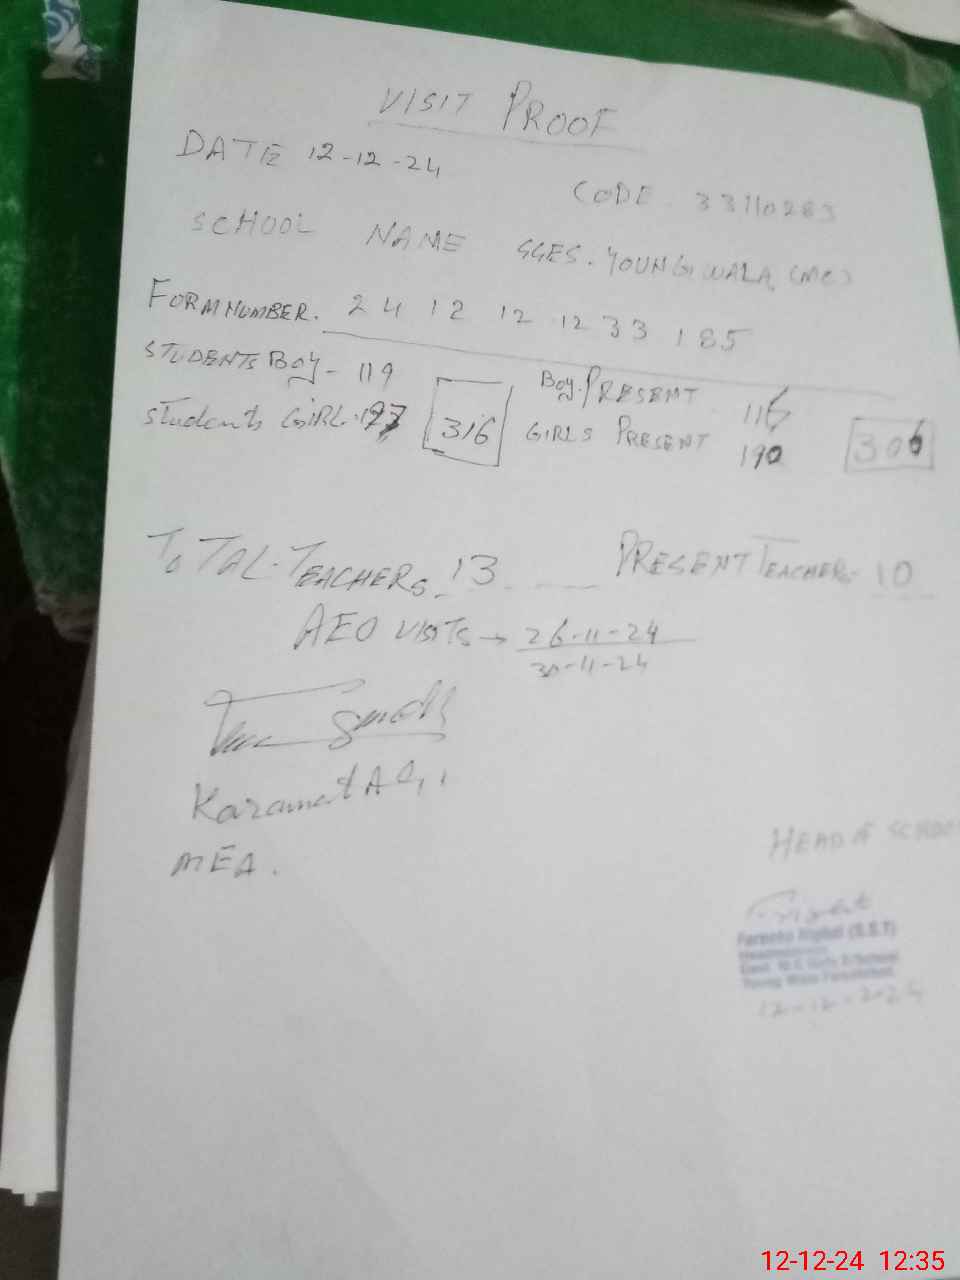 VISIT PROOF
DATE 12-12-24
CODE. 33110283
SCHOOL NAME GGES. YOUNG WALA, (MC)
FORM NUMBER. 24 12 12 12 33 185
STUDENTS BOY - 119 BOY. PRESENT 116
Students GIRL. 197 316 GIRLS PRESENT 190 306
TOTAL. TEACHERS. 13 PRESENT TEACHERS - 10
AEO VISITS → 26-11-24
30-11-24
Karamat Ali
MEA.
HEAD OF SCHOOL
(S.S.T)
12-12-2024
12-12-24 12:35